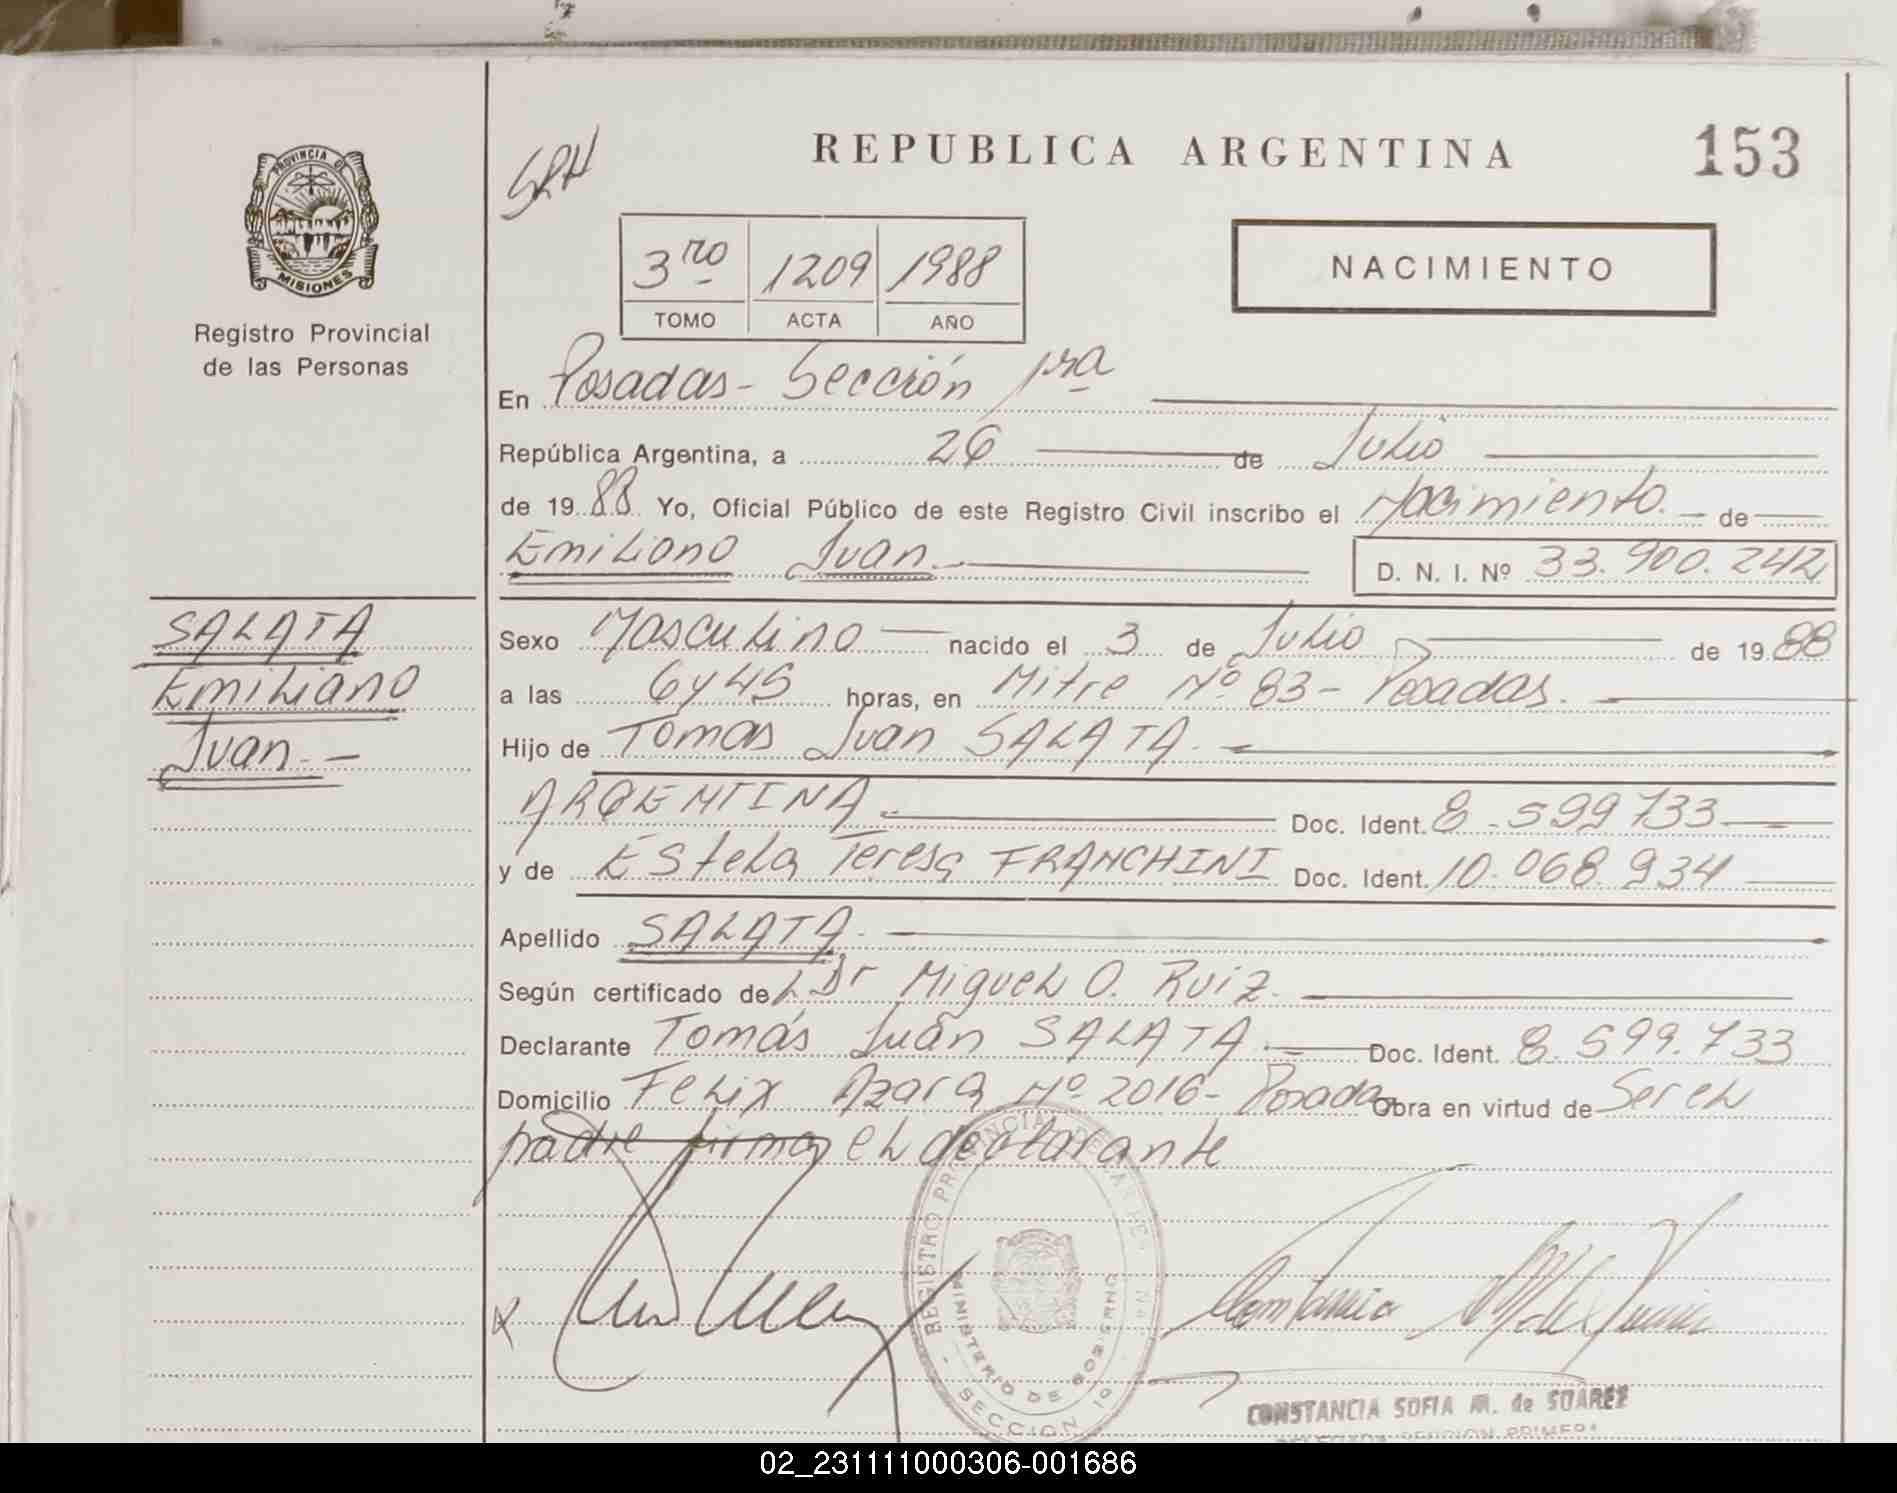 PROVINCIA DE
MISIONES
Registro Provincial
de las Personas
SALATA
Emiliano
Juan.-
SRH
REPUBLICA ARGENTINA
153
3ro 1209 1988
TOMO ACTA AÑO
NACIMIENTO
En Posadas- Sección 1ra
República Argentina, a 26 de Julio
de 1988 Yo, Oficial Público de este Registro Civil inscribo el Nacimiento.- de
Emiliano Juan.- D. N. I. Nº 33.900.242
Sexo Masculino nacido el 3 de Julio de 1988
a las 6 y 45 horas, en Mitre Nº 83- Posadas.
Hijo de Tomas Juan SALATA.
ARGENTINA.- Doc. Ident. 8.599733
y de Estela Teresa FRANCHINI Doc. Ident. 10.068.934
Apellido SALATA.
Según certificado del Dr Miguel O. Ruiz.
Declarante Tomás Juan SALATA.- Doc. Ident. 8.599.733
Domicilio Felix Azara Nº 2016- Posadas Obra en virtud de Ser el
padre firma el declarante
REGISTRO PROVINCIAL DE LAS PE
MINISTERIO DE GOBIERNO
SECCION 1º
CONSTANCIA SOFIA M. de SUAREZ
DELEGADA SECCION PRIMERA
02_231111000306-001686